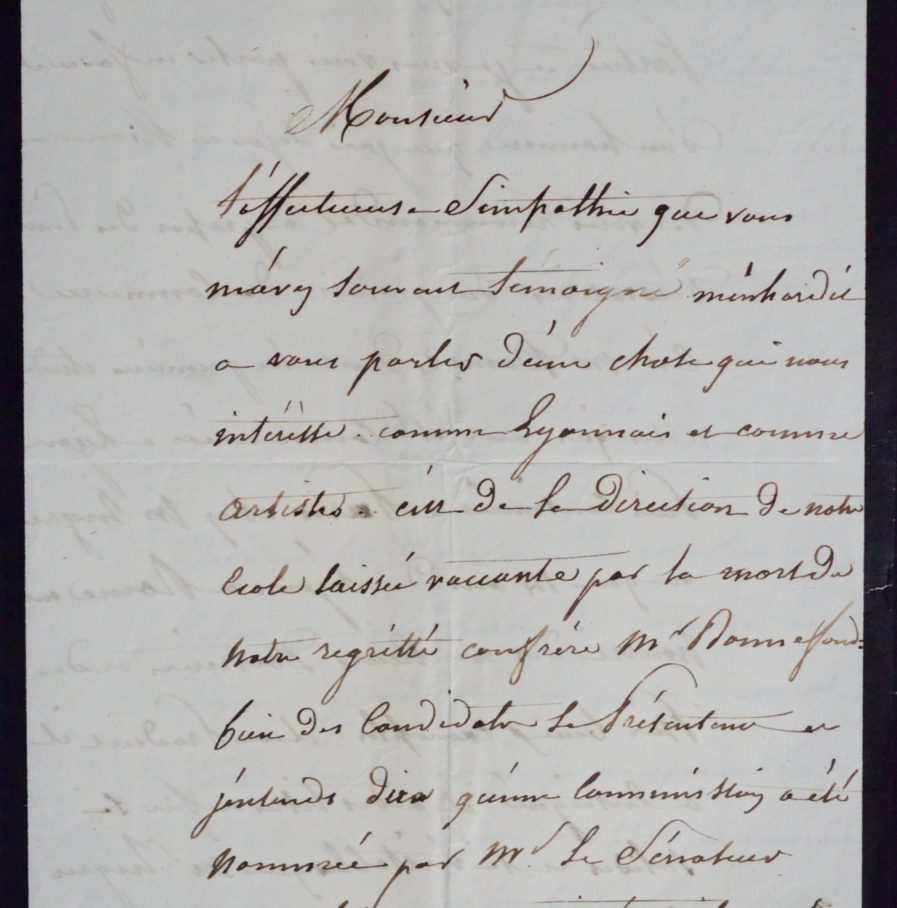 Monsieur
l'affectueuse Simpathie que vous
m'avez souvent témoigné m'enhardit
a vous parler d'une chose qui nous
intéresse comme Lyonnais et comme
artistes. c'est de la direction de notre
école laissée vaccante par la mort de
notre regrétté confrére Mr Bonnefond=
bien des Candidats se Présentent et
j'entends dire qu'une Commission a été
nommée par Mr le Sénateur